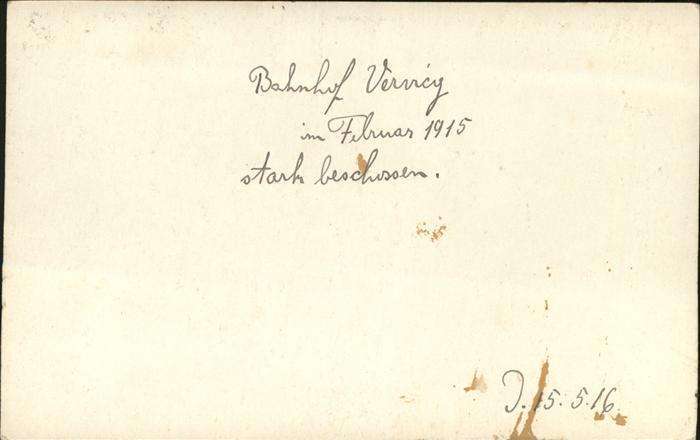 Bahnhof Vervicq
im Februar 1915
stark beschossen.
J. 15.5.16.